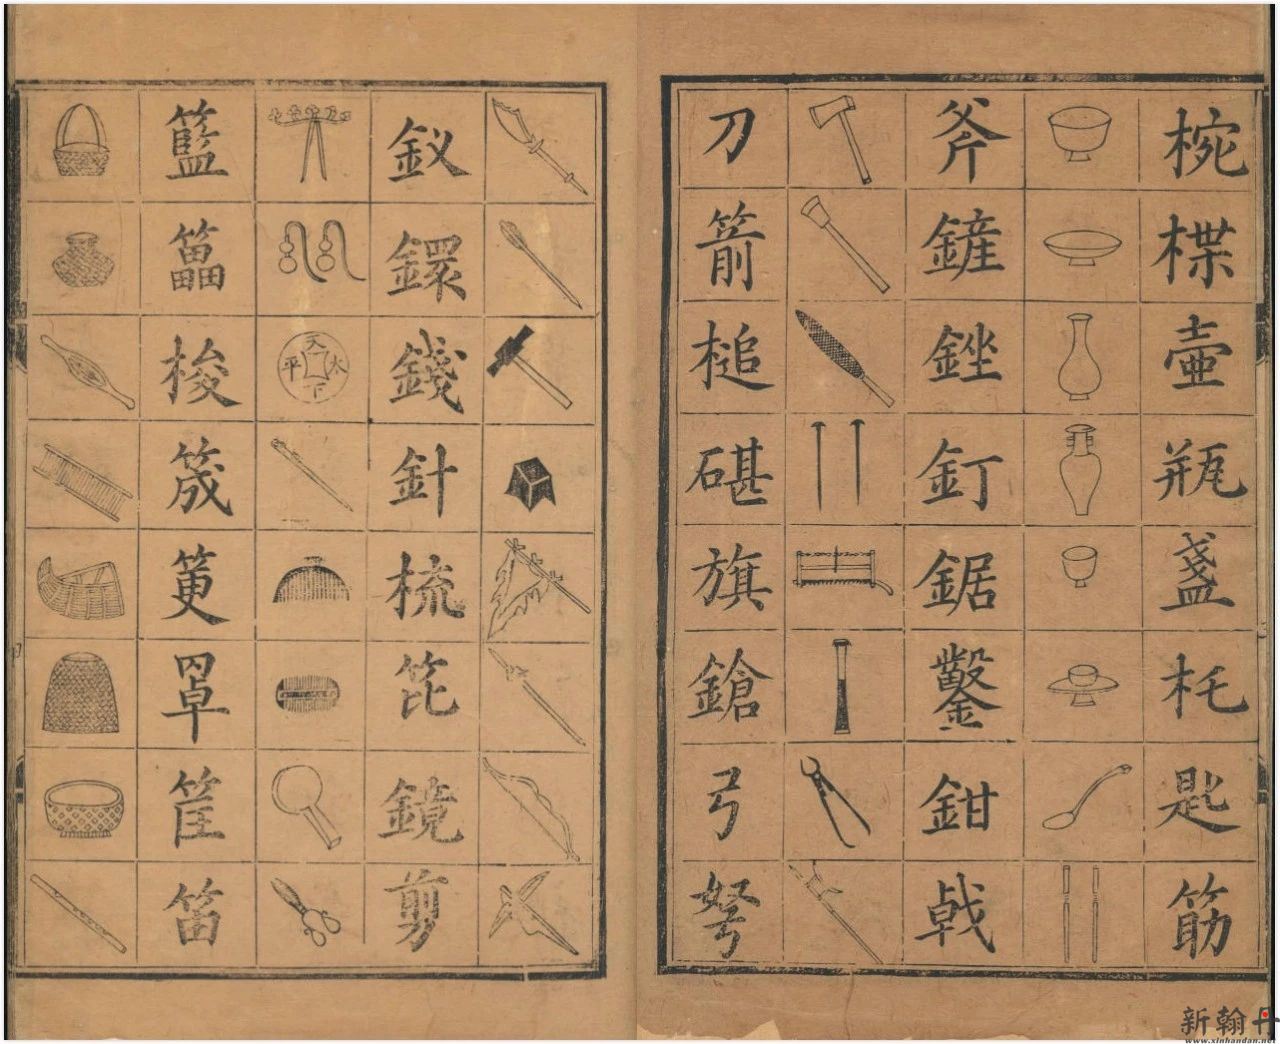 椀楪壺瓶盞杔匙筋
斧鏟銼釘鋸鑿鉗戟
刀箭槌碪旗鎗弓弩
釵鐶錢針梳笓鏡剪
天下太平
籃梭筬罩筐笛
新翰丹
www.xinhandan.net